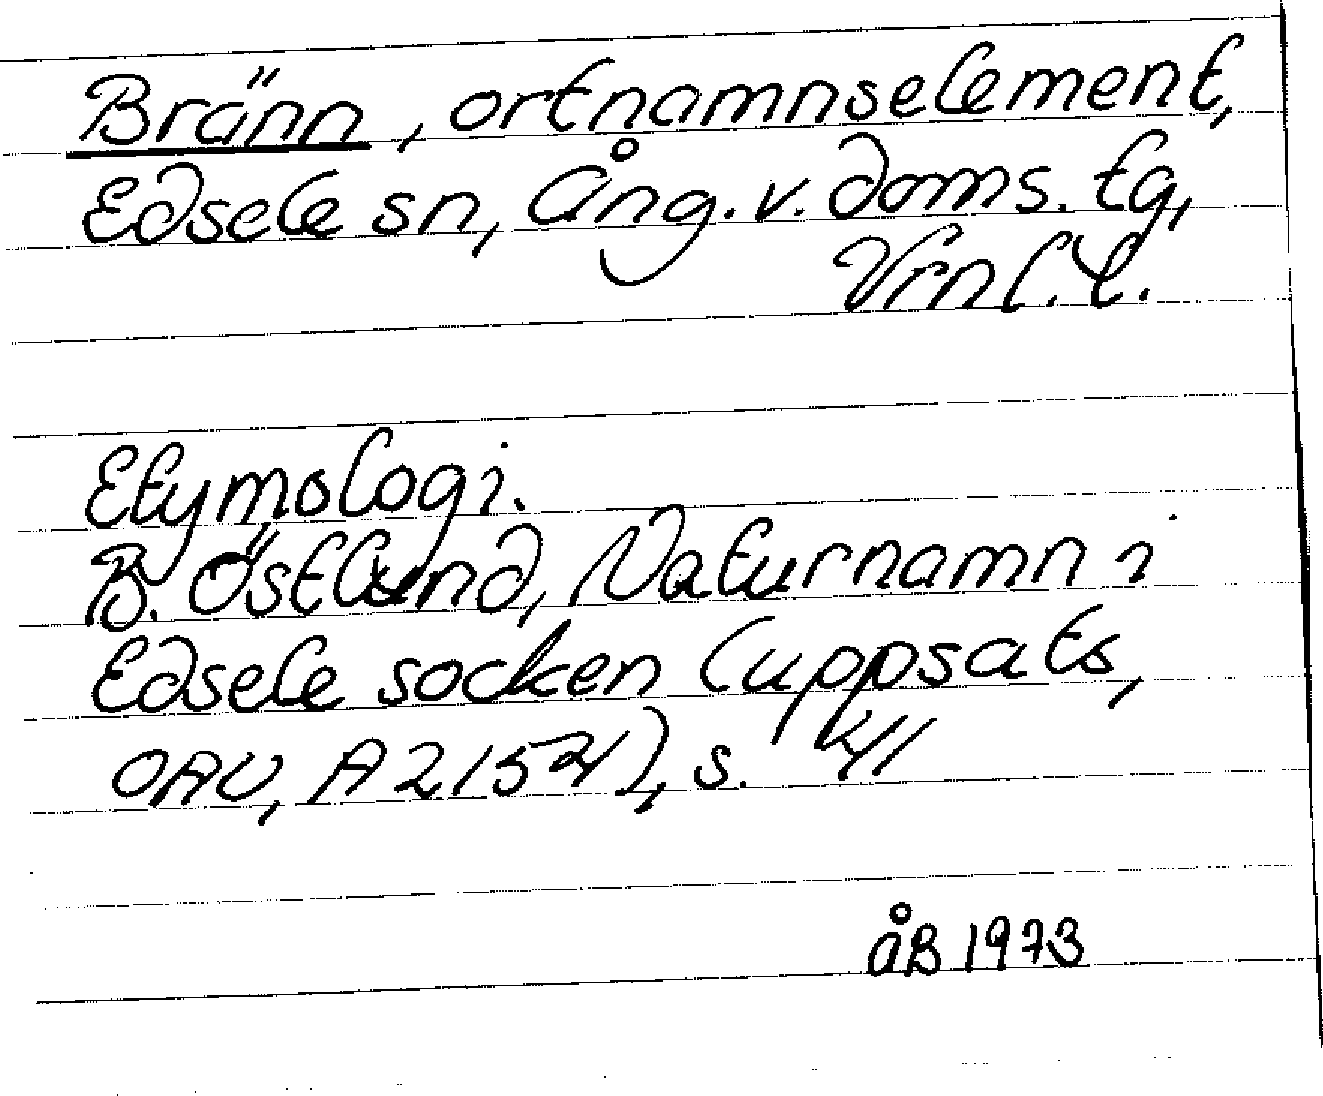 Bränn, ortnamnselement,
Edsele sn, Ång. v. doms. tg,
Vrnl. L.
Etymologi.
B. Östlund, Naturnamn i
Edsele socken (uppsats,
OAU, A 2154), s. 41
åB 1973